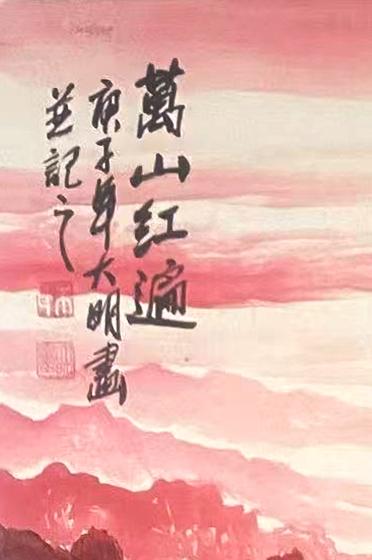 萬山红遍
庚子年大明畫
並記之